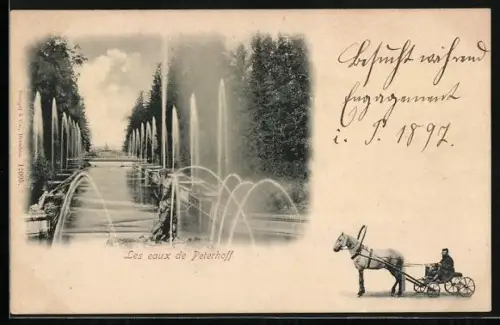 Besucht während
Engagement
i. P. 1897.
Les eaux de Peterhoff
Stengel & Co., Dresden. 1890.